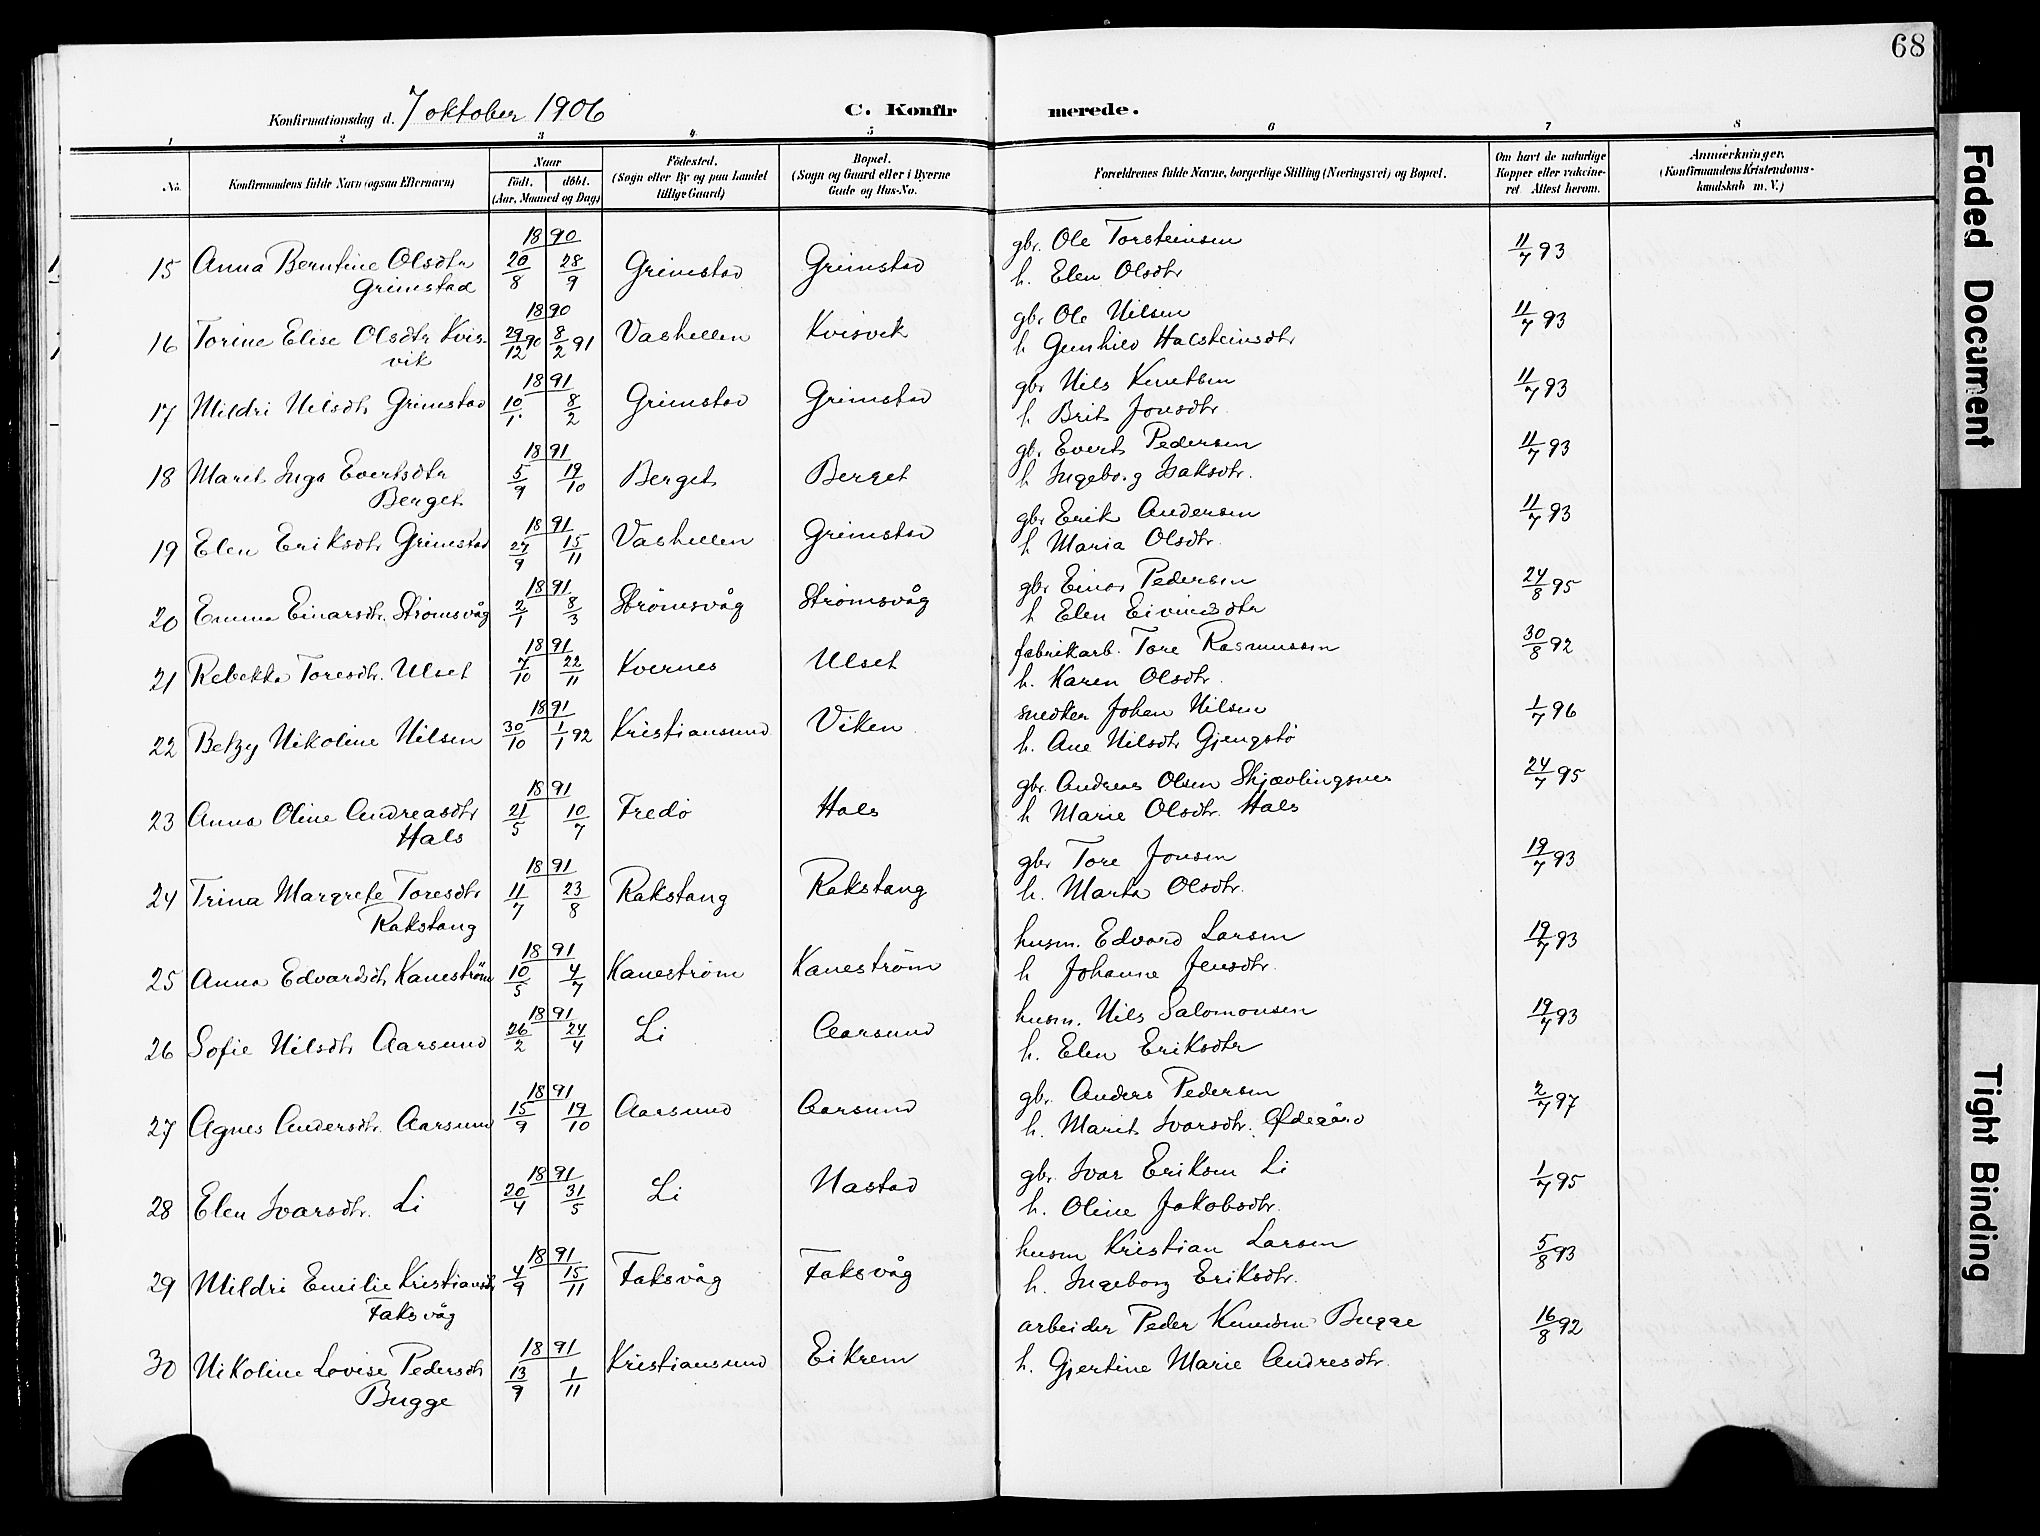 68
Konfirmationsdag d. 7 oktober 1906 C. Konfir merede.
1 2 3 4 5 6 7 8
No. Konfirmandens fulde Navn (ogsaa Efternavn) Naar Födt. döbt. (Aar, Maaned og Dag) Födested. (Sogn eller By og paa Landet tillige Gaard) Bopæl. (Sogn og Gaard eller i Byerne Gade og Hus-No. Forældrenes fulde Navne, borgerlige Stilling (Næringsvei) og Bopæl. Om havt de naturlige Kopper eller vakcineret Attest herom. Anmærkninger. (Konfirmandens Kristendomskundskab m. V.)
1890
15 Anna Berntine Olsdtr 20/8 28/9 Grimstad Grimstad gbr. Ole Torsteinsen 11/7 93
Grimstad h. Elen Olsdtr
1890
16 Torine Elise Olsdtr Kvis- 29/12 90 8/2 91 Vashellen Kvisvik gbr. Ole Nilsen 11/7 93
vik h Gunhild Halsteinsdtr
1891
17 Mildri Nilsdtr Grimstad 10/1 8/2 Grimstad Grimstad gbr Nils Knutsen 11/7 93
h. Brit Jonsdtr.
1891
18 Marit Inga Evertsdtr 5/9 19/10 Berget Berget gb. Evert Pedersen 11/7 93
Berget h Ingeborg Isaksdtr.
1891
19 Elen Eriksdtr Grimstad 27/9 15/11 Vashellen Grimstad gbr Erik Andersen 11/7 93
h Maria Olsdtr.
1891
20 Emma Einarsdtr. Strömsvåg 2/1 8/3 Strömsvåg Strömsvåg gbr. Einar Pedersen 24/8 95
h Elen Eivindsdtr
1891
21 Rebekka Toresdtr. Ulset 7/10 22/11 Kvernes Ulset fabrikarb. Tore Rasmussen 30/8 92
h. Karen Olsdtr.
1891
22 Betzy Nikoline Nilsen 30/10 1/1 92 Kristiansund Viken snedker Johan Nilsen 1/7 96
h. Ane Nilsdtr Gjengstö
1891
23 Anna Oline Andreasdtr 21/5 10/7 Fredö Hals gbr. Andreas Olsen Skjævlingsnes 24/7 95
Hals h Marie Olsdtr. Hals
1891
24 Trina Margrete Toresdtr 11/7 23/8 Rakstang Rakstang gbr Tore Jonsen 19/7 93
Rakstang h. Marta Olsdtr.
1891
25 Anna Edvardsdtr Kaneström 10/5 4/7 Kaneström Kaneström husm. Edvard Larsen 19/7 93
h Johanne Jensdtr.
1891
26 Sofie Nilsdtr Aarsund 26/2 24/4 Li Aarsund husm. Nils Salomonsen 19/7 93
h. Elen Eriksdtr
1891
27 Agnes Andersdtr. Aarsund 15/9 19/10 Aarsund Aarsund gb. Anders Pedersen 2/7 97
h. Marit Ivarsdtr. Ødegård
1891
28 Elen Ivarsdtr. Li 20/4 31/5 Li Nastad gbr. Ivar Eriksen Li 1/7 95
h. Oline Jakobsdtr.
1891
29 Mildri Emilie Kristiansdtr 4/9 15/11 Faksvåg Faksvåg husm Kristian Larsen 5/8 93
Faksvåg h. Ingeborg Eriksdtr.
1891
30 Nikoline Lovise Pedersdtr 13/9 1/11 Kristiansund Eikrem arbeider Peder Knudsen Bugge 16/8 92
Bugge h. Gjertine Marie Andresdtr.
Faded Document
Tight Binding